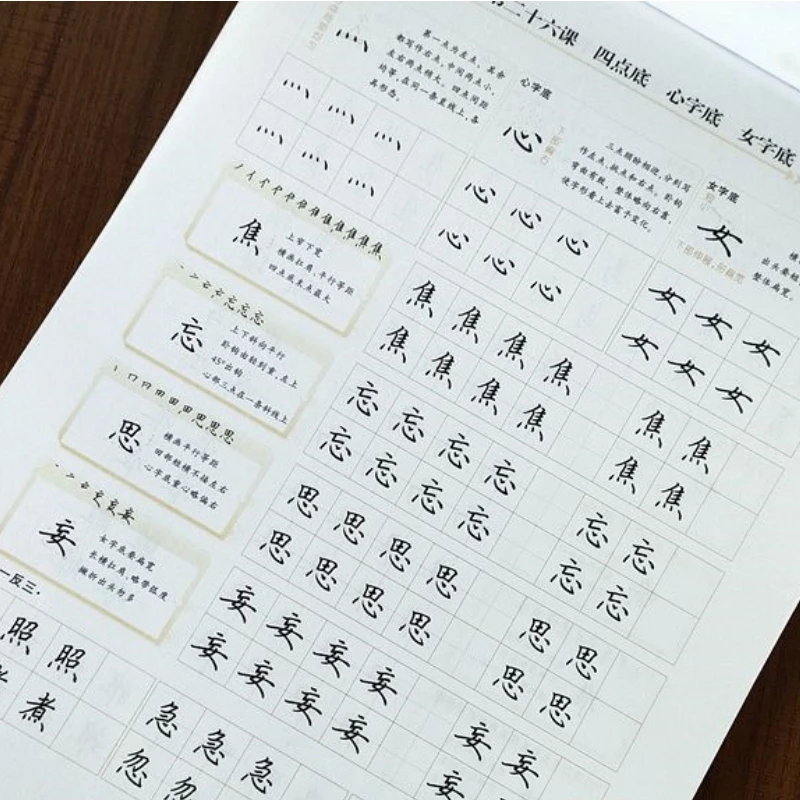 二十六课 四点底 心字底 女字底
灬
第一点为左点，其余
都写作右点，中间两点小，
左右两点稍大，四点间距
均等，在同一条直线上，各
具形态。
灬 灬 灬
灬 灬 灬
心字底
心
三点顾盼相迎，分别写
作左点、挑点和右点。卧钩
弯曲有致，整体略向右靠，
使字形看上去富于变化。
心 心 心
心 心 心
女字底
女
下部伸展，形扁宽
横
出头要短
整体扁宽。
女 女 女
女 女 女
焦
上窄下宽
横画扛肩、平行等距
四点底末点最大
焦 焦 焦 焦 焦 焦
焦 焦 焦 焦 焦 焦
忘
上下斜向平行
卧钩由轻到重，左上
45°出钩
心部三点在一条斜线上
忘 忘 忘 忘 忘 忘
忘 忘 忘 忘 忘 忘
思
横画平行等距
田部短横不接左右
心字底重心略偏右
思 思 思 思 思 思
思 思 思 思 思 思
妄
女字底要扁宽
长横扛肩，略带弧度
撇折出头勿多
妄 妄 妄 妄 妄 妄
妄 妄 妄 妄 妄
一反三·
照 照
煮
急 急 急
忽 忽